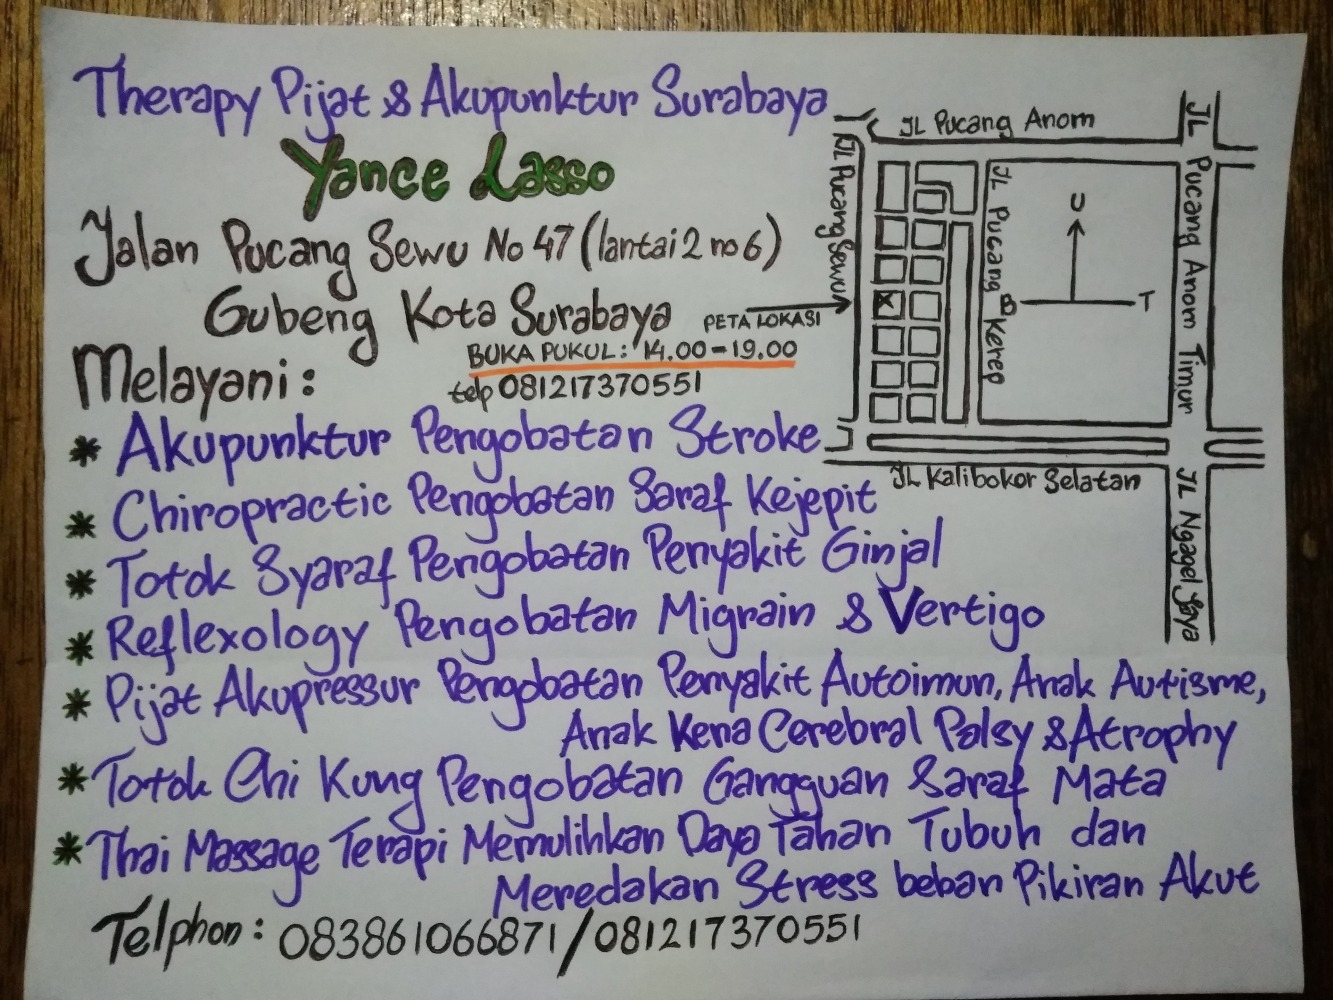 Therapy Pijat & Akupunktur Surabaya
Yance Lasso
Jalan Pucang Sewu No 47 (lantai 2 no 6)
Gubeng Kota Surabaya
PETA LOKASI
BUKA PUKUL: 14.00-19.00
telp 081217370551
Melayani:
* Akupunktur Pengobatan Stroke
* Chiropractic Pengobatan Saraf Kejepit
* Totok Syaraf Pengobatan Penyakit Ginjal
* Reflexology Pengobatan Migrain & Vertigo
* Pijat Akupressur Pengobatan Penyakit Autoimun, Anak Autisme,
Anak Kena Cerebral Palsy & Atrophy
* Totok Chi Kung Pengobatan Gangguan Saraf Mata
* Thai Massage Terapi Memulihkan Daya Tahan Tubuh dan
Meredakan Stress beban Pikiran Akut
Telphon: 083861066871/081217370551
JL Pucang Anom
JL Pucang Sewu
JL Pucang Kerep
JL Pucang Anom Timur
U
B
T
X
JL Kalibokor Selatan
JL Ngagel Jaya